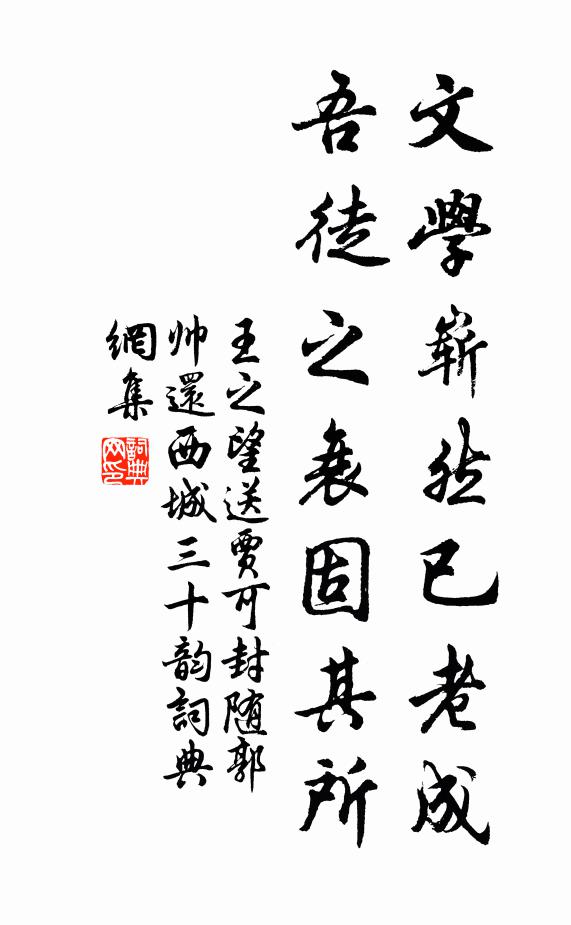 文學嶄然已老成
吾徒之衰固其所
王之望送賈可封随郭
帅還西城三十韵詞典
網集
詞典
网印